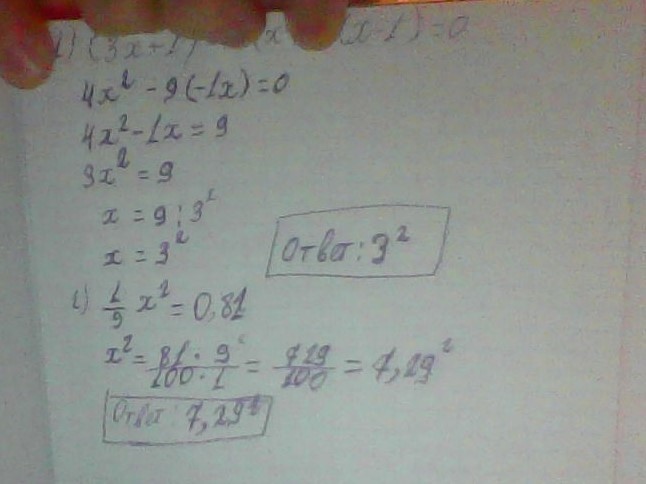 1) (3x+1) (x-1)=0
4x² - 9(-1x)=0
4x² - 1x = 9
3x² = 9
x = 9 : 3²
x = 3²
Ответ: 3²
2) 1/9 x² = 0,81
x² = 81 · 9/100 · 1 = 729/100 = 7,29²
Ответ: 7,29²